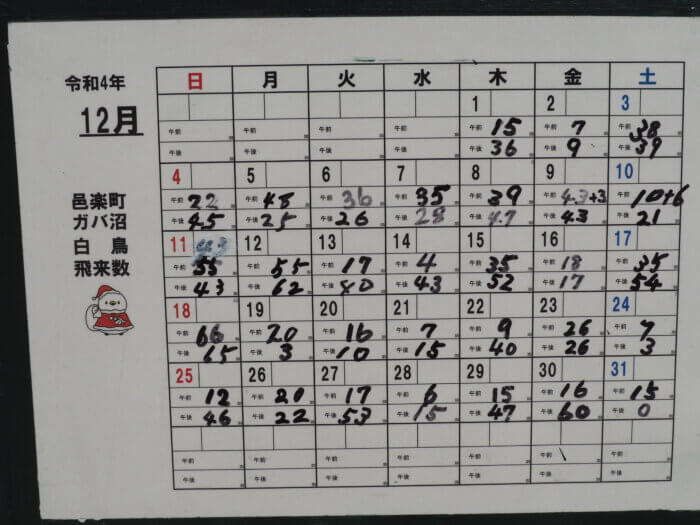 令和4年
12月
邑楽町
ガバ沼
白 鳥
飛来数
日 月 火 水 木 金 土
1 2 3
午前 午前 午前 午前 午前 15 午前 7 午前 38
午後 午後 午後 午後 午後 36 午後 9 午後 39
4 5 6 7 8 9 10
午前 22 午前 48 午前 36 午前 35 午前 39 午前 4.3+3 午前 10+6
午後 45 午後 25 午後 26 午後 28 午後 4.7 午後 4.3 午後 21
11 12 13 14 15 16 17
午前 55 午前 55 午前 17 午前 4 午前 35 午前 18 午前 35
午後 43 午後 62 午後 80 午後 43 午後 52 午後 17 午後 54
18 19 20 21 22 23 24
午前 66 午前 20 午前 16 午前 7 午前 9 午前 26 午前 7
午後 65 午後 3 午後 10 午後 15 午後 40 午後 26 午後 3
25 26 27 28 29 30 31
午前 12 午前 20 午前 17 午前 6 午前 15 午前 16 午前 15
午後 46 午後 22 午後 53 午後 15 午後 47 午後 60 午後 0
午前 午前 午前 午前 午前 午前 午前
午後 午後 午後 午後 午後 午後 午後